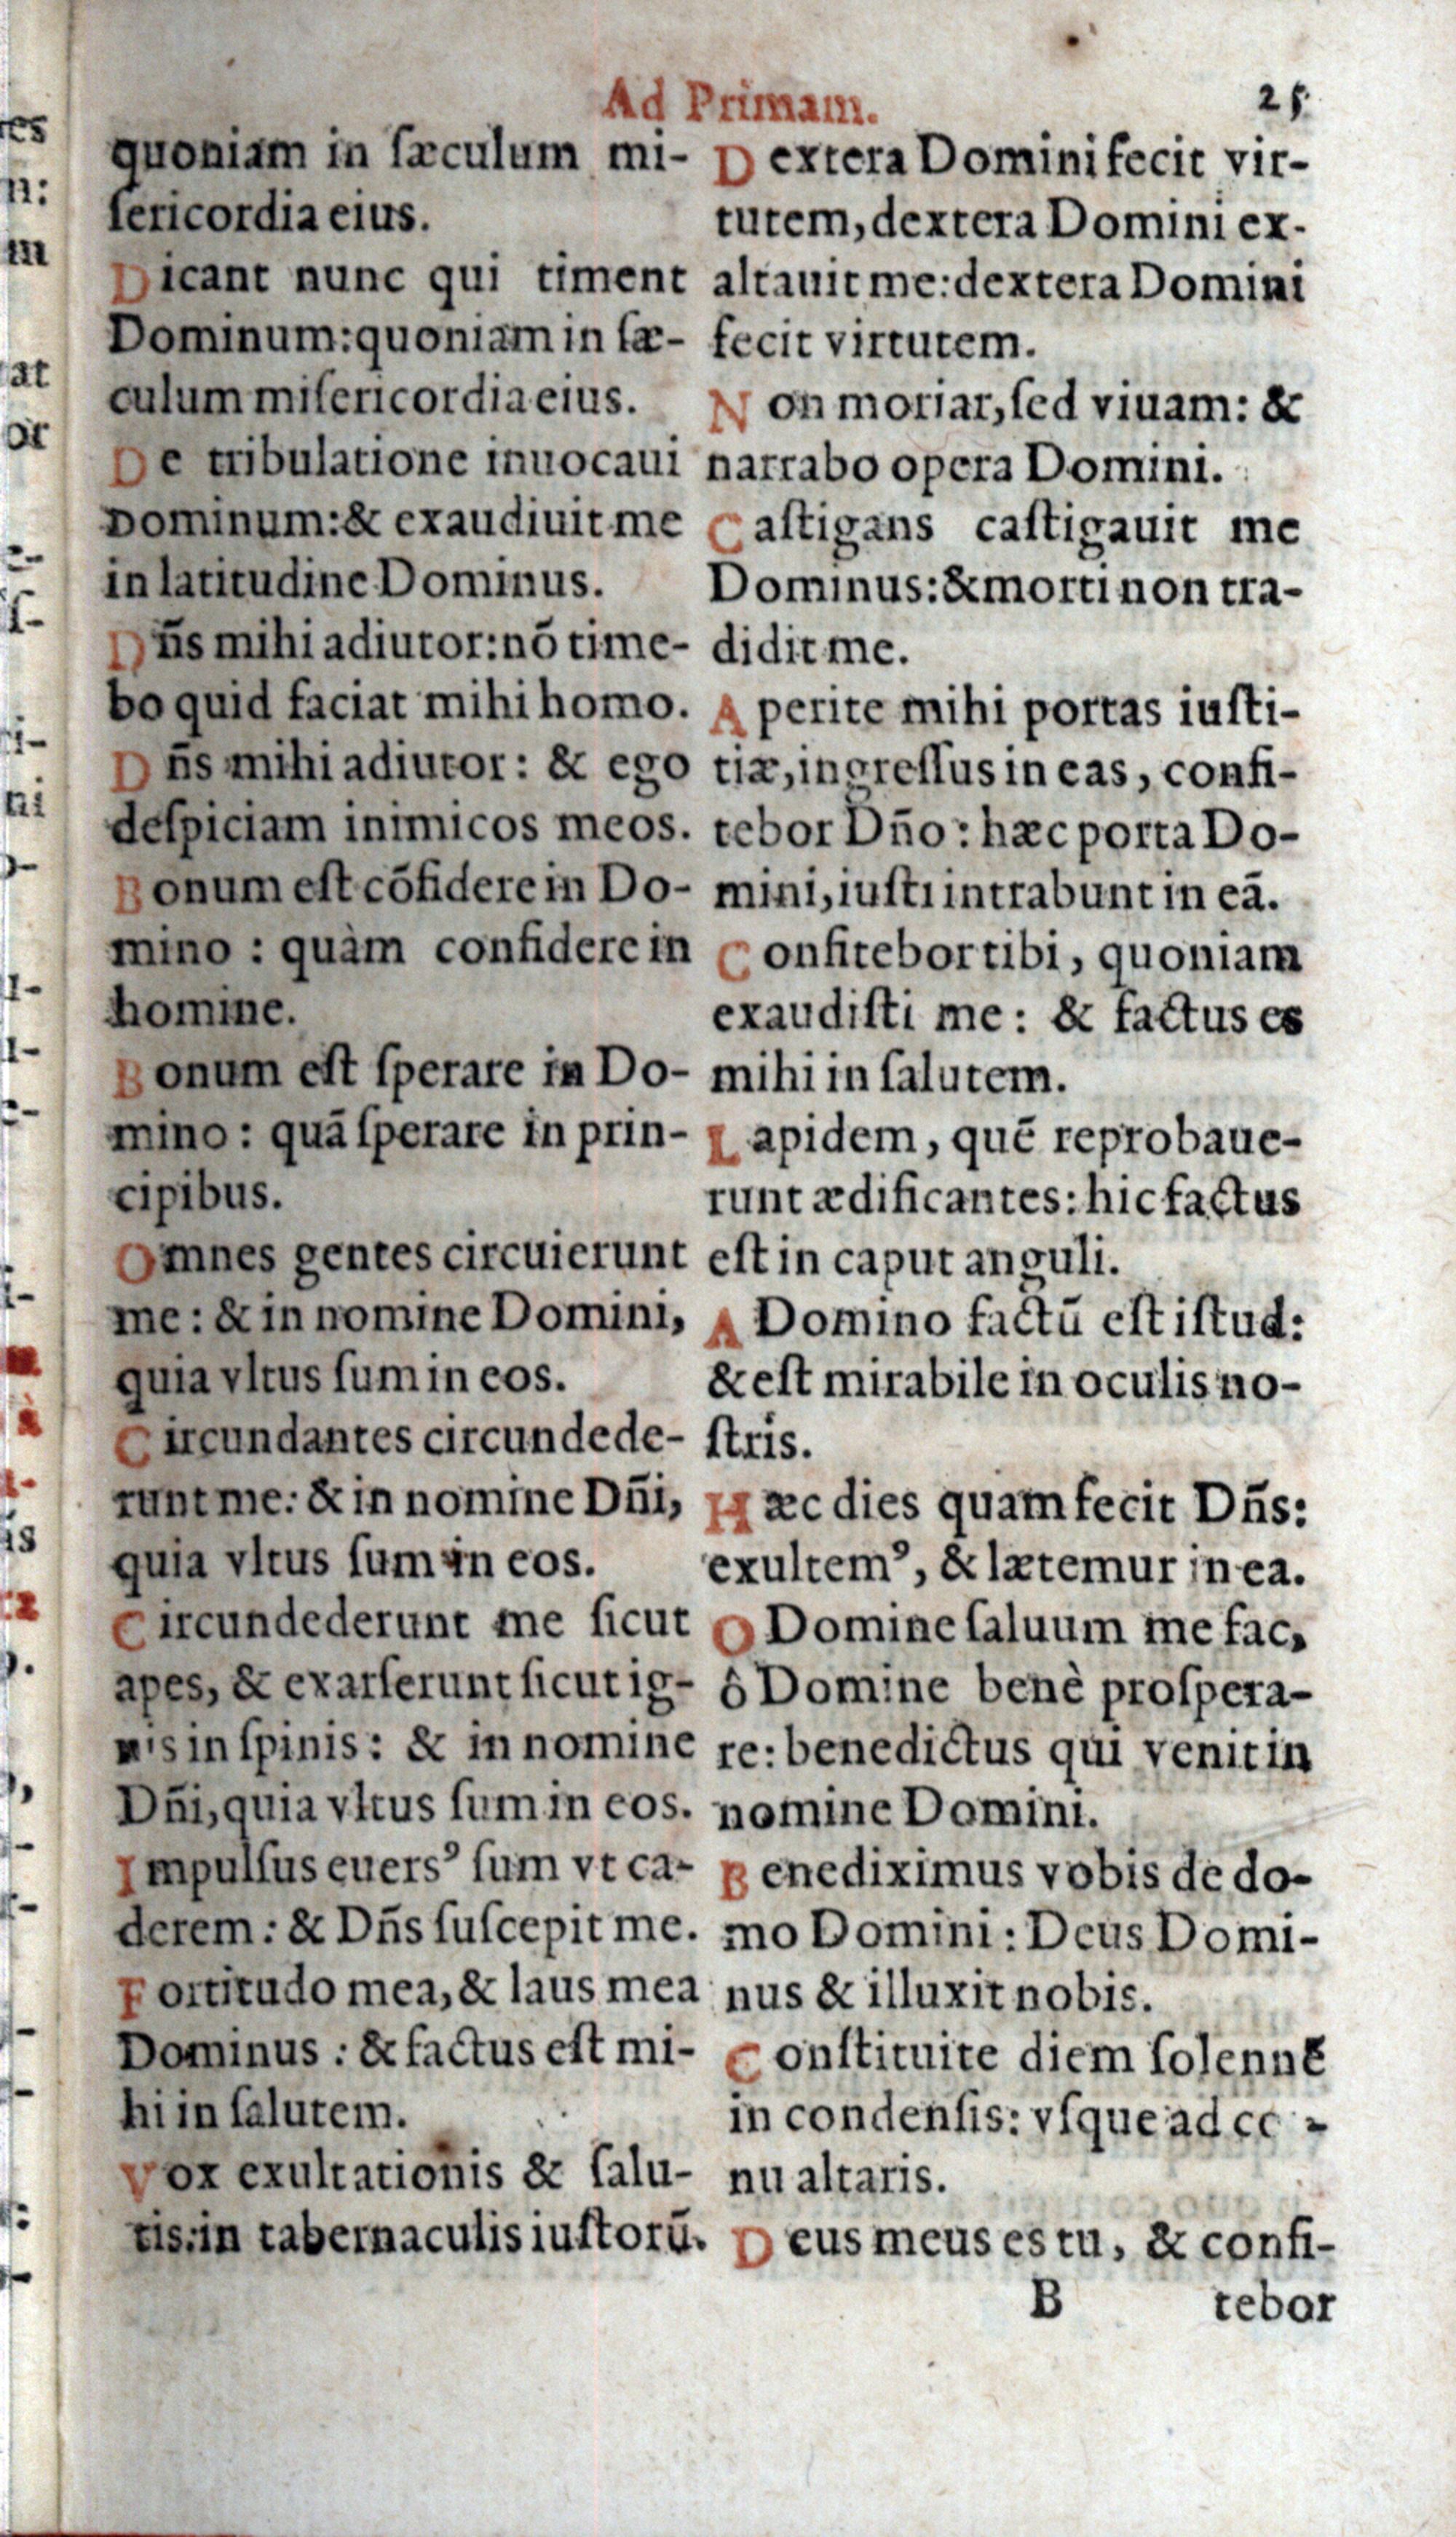 Ad Primam.
25
quoniam in ſæculum mi-
ſericordia eius.
Dicant nunc qui timent
Dominum: quoniam in ſæ-
culum miſericordia eius.
De tribulatione inuocaui
Dominum: & exaudiuit me
in latitudine Dominus.
Dn̄s mihi adiutor: nō time-
bo quid faciat mihi homo.
Dn̄s mihi adiutor: & ego
deſpiciam inimicos meos.
Bonum eſt cōfidere in Do-
mino: quàm confidere in
homine.
Bonum eſt ſperare in Do-
mino: quā ſperare in prin-
cipibus.
Omnes gentes circuierunt
me: & in nomine Domini,
quia vltus ſum in eos.
Circundantes circundede-
runt me: & in nomine Dn̄i,
quia vltus ſum in eos.
Circundederunt me ſicut
apes, & exarſerunt ſicut ig-
nis in ſpinis: & in nomine
Dn̄i, quia vltus ſum in eos.
Impulſus euersꝰ ſum vt ca-
derem: & Dn̄s ſuſcepit me.
Fortitudo mea, & laus mea
Dominus: & factus eſt mi-
hi in ſalutem.
Vox exultationis & ſalu-
tis: in tabernaculis iuſtorū.
Dextera Domini fecit vir-
tutem, dextera Domini ex-
altauit me: dextera Domini
fecit virtutem.
Non moriar, ſed viuam: &
narrabo opera Domini.
Caſtigans caſtigauit me
Dominus: & morti non tra-
didit me.
Aperite mihi portas iuſti-
tiæ, ingreſſus in eas, confi-
tebor Dn̄o: hæc porta Do-
mini, iuſti intrabunt in eā.
Confitebor tibi, quoniam
exaudiſti me: & factus es
mihi in ſalutem.
Lapidem, quē reprobaue-
runt ædificantes: hic factus
eſt in caput anguli.
A Domino factū eſt iſtud:
& eſt mirabile in oculis no-
ſtris.
Hæc dies quam fecit Dn̄s:
exultemꝰ, & lætemur in ea.
O Domine ſaluum me fac,
ô Domine benè proſpera-
re: benedictus qui venit in
nomine Domini.
Benediximus vobis de do-
mo Domini: Deus Domi-
nus & illuxit nobis.
Conſtituite diem ſolennē
in condenſis: vſque ad
nu altaris.
Deus meus es tu, & confi-
B tebor